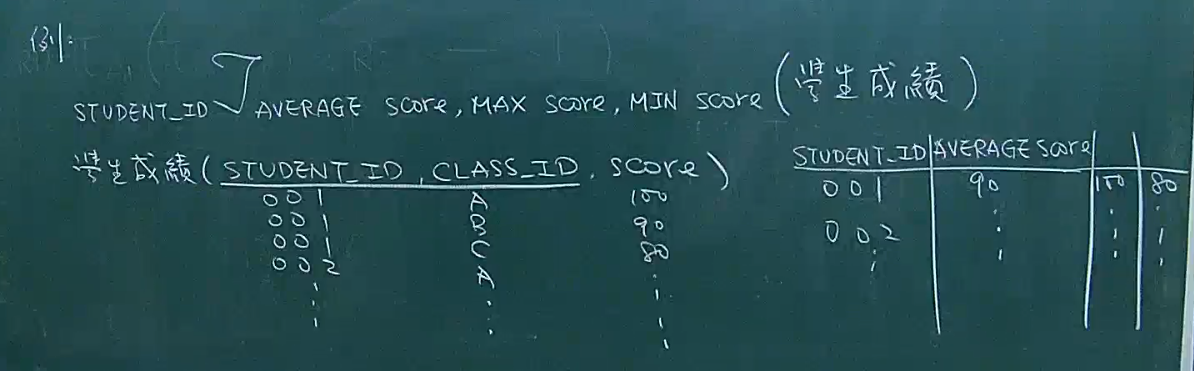 例:
STUDENT_ID ℱ AVERAGE score, MAX score, MIN score (學生成績)
學生成績 (STUDENT_ID, CLASS_ID, score)
001 A 100
001 B 90
001 C 80
002 A
STUDENT_ID AVERAGE score
001 90 100 80
002